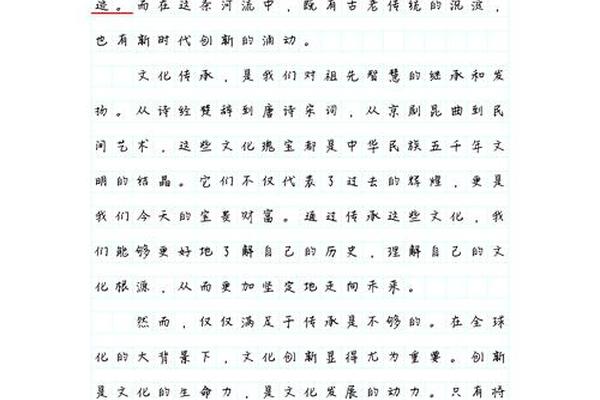 造。而在这条河流中，既有古老传统的沉淀，
也有新时代创新的涌动。
文化传承，是我们对祖先智慧的继承和发
扬。从诗经楚辞到唐诗宋词，从京剧昆曲到民
间艺术，这些文化瑰宝都是中华民族五千年文
明的结晶。它们不仅代表了过去的辉煌，更是
我们今天的宝贵财富。通过传承这些文化，我
们能够更好地了解自己的历史，理解自己的文
化根源，从而更加坚定地走向未来。
然而，仅仅满足于传承是不够的。在全球
化的大背景下，文化创新显得尤为重要。创新
是文化的生命力，是文化发展的动力。只有将